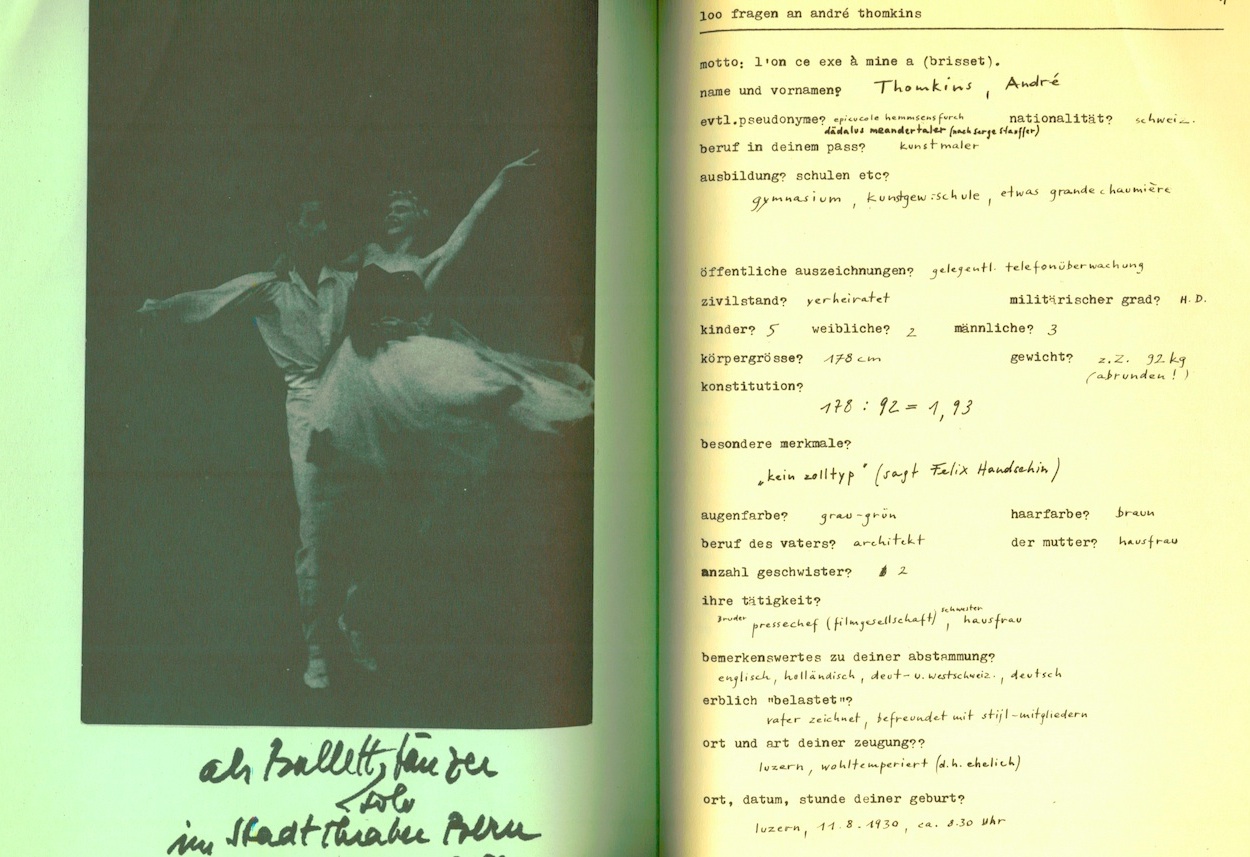 als Ballettänzer
solo
im Stadttheater Bern
100 fragen an andré thomkins
motto: l'on ce exe à mine a (brisset).
name und vornamen? Thomkins, André
evtl.pseudonyme? epicucole hemmsensfurch nationalität? schweiz.
dädalus meandertaler (nach serge stauffer)
beruf in deinem pass? kunstmaler
ausbildung? schulen etc?
gymnasium, kunstgew.schule, etwas grande chaumière
öffentliche auszeichnungen? gelegentl. telefonüberwachung
zivilstand? verheiratet militärischer grad? H.D.
kinder? 5 weibliche? 2 männliche? 3
körpergrösse? 178 cm gewicht? z.Z. 92 kg
(abrunden!)
konstitution?
178 : 92 = 1,93
besondere merkmale?
„kein zolltyp" (sagt Felix Handschin)
augenfarbe? grau-grün haarfarbe? braun
beruf des vaters? architekt der mutter? hausfrau
anzahl geschwister? 2
ihre tätigkeit?
Bruder pressechef (filmgesellschaft), schwester hausfrau
bemerkenswertes zu deiner abstammung?
englisch, holländisch, deut- u. westschweiz., deutsch
erblich "belastet"?
vater zeichnet, befreundet mit stijl-mitgliedern
ort und art deiner zeugung??
luzern, wohltemperiert (d.h. ehelich)
ort, datum, stunde deiner geburt?
luzern, 11.8.1930, ca. 8.30 Uhr